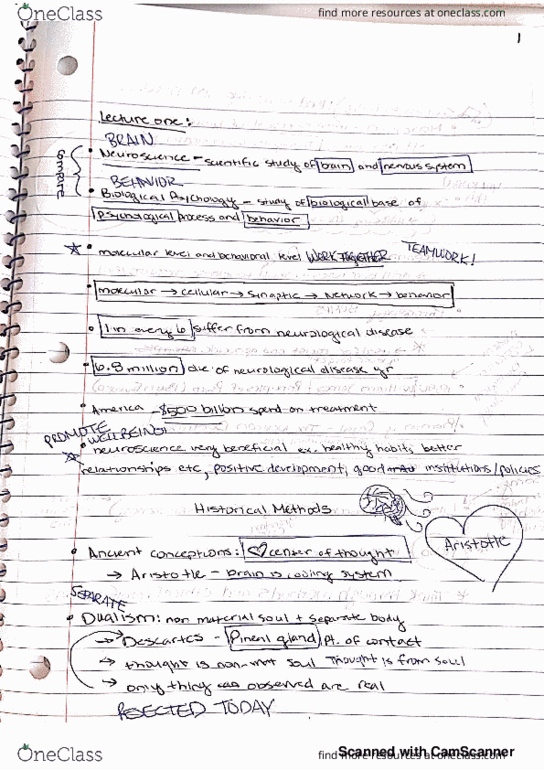 OneClass
find more resources at oneclass.com
1
Lecture one:
BRAIN
Neuroscience - scientific study of brain and nervous system
BEHAVIOR
Biological Psychology - study of biological base of
psychological process and behavior
molecular level and behavioral level WORK TOGETHER TEAMWORK!
molecular → cellular → synaptic → network → behavior
1 in every 6 suffer from neurological disease
6.8 million die of neurological disease yr
America - $500 billion spend on treatment
PROMOTE WELLBEING!
neuroscience very beneficial ex. healthy habits, better
relationships etc, positive development, good institutions/policies
Historical Methods
Aristotle
Ancient conceptions: ♡ center of thought
→ Aristotle - brain is cooling system
SEPARATE
Dualism: non material soul + separate body
→ Descartes - Pineal gland pt. of contact
→ thought is non-mat soul Thought is from soul
→ only thing observed are real
REJECTED TODAY
OneClass
find more resources at oneclass.com
Scanned with CamScanner